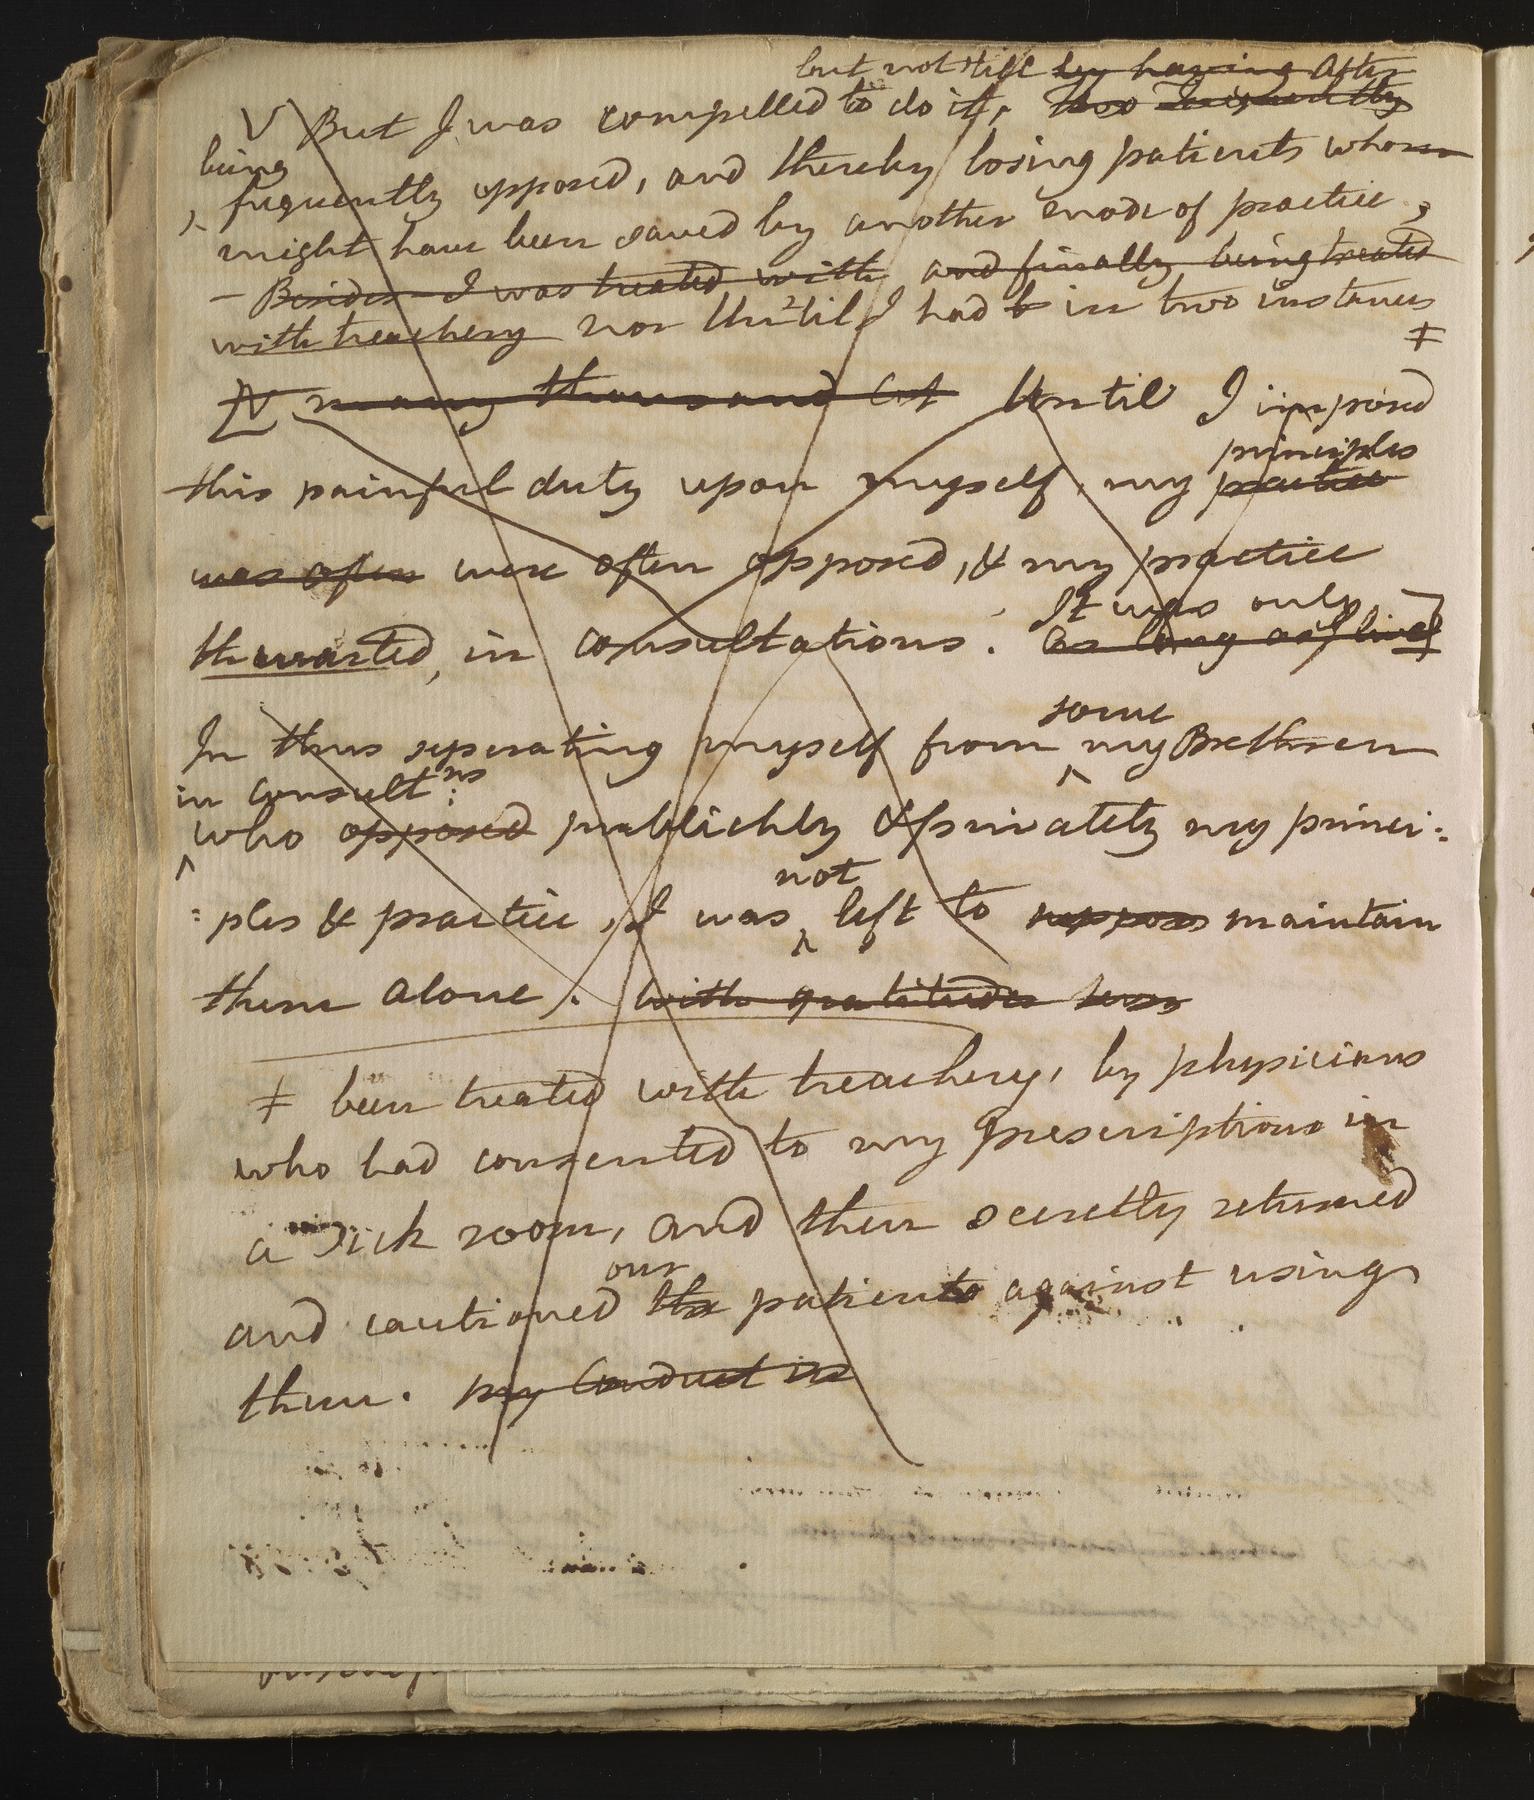 but not till by having After
V But I was compelled to do it,
being
frequently opposed, and thereby losing patients whom
might have been saved by another mode of practice,
– Besides I was treated with and finally being treated
with treachery nor Until I had b in two instances
‡
N many thousand Until I imposed
principles
this painful duty upon myself, my practice
was often were often opposed, & my practice
It was only
thwarted, in consultations. As long as I lived
some
In thus seperating myself from ^ my Brethren
in consultns:
^ who opposed publickly & privately my princi:
not
:ples & practice, I was ^ left to maintain
them alone. with gratitude
‡ been treated with treachery, by physicians
who had consented to my prescriptions in
a sick room, and then secretly returned
our
and cautioned the patients against using
them. my Conduct in